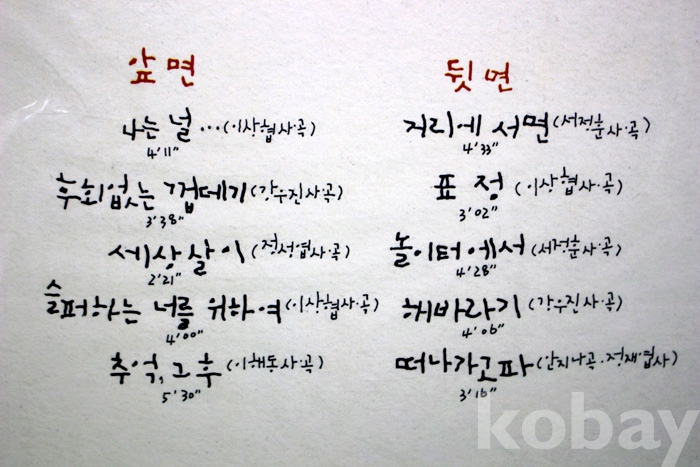 앞면
나는 널 …(이상협사·곡)
4'11"
후회없는 껍데기(강우진사·곡)
3'38"
세상살이(정성엽사·곡)
2'21"
슬퍼하는 너를 위하여(이상협사·곡)
4'00"
추억, 그 후(이해동사·곡)
5'30"
뒷면
거리에 서면(서정훈사·곡)
4'33"
표정(이상협사·곡)
3'02"
놀이터에서(서정훈사·곡)
4'28"
해바라기(강우진사·곡)
4'06"
떠나가고파(안지나곡·정재엽사)
3'16"
kobay